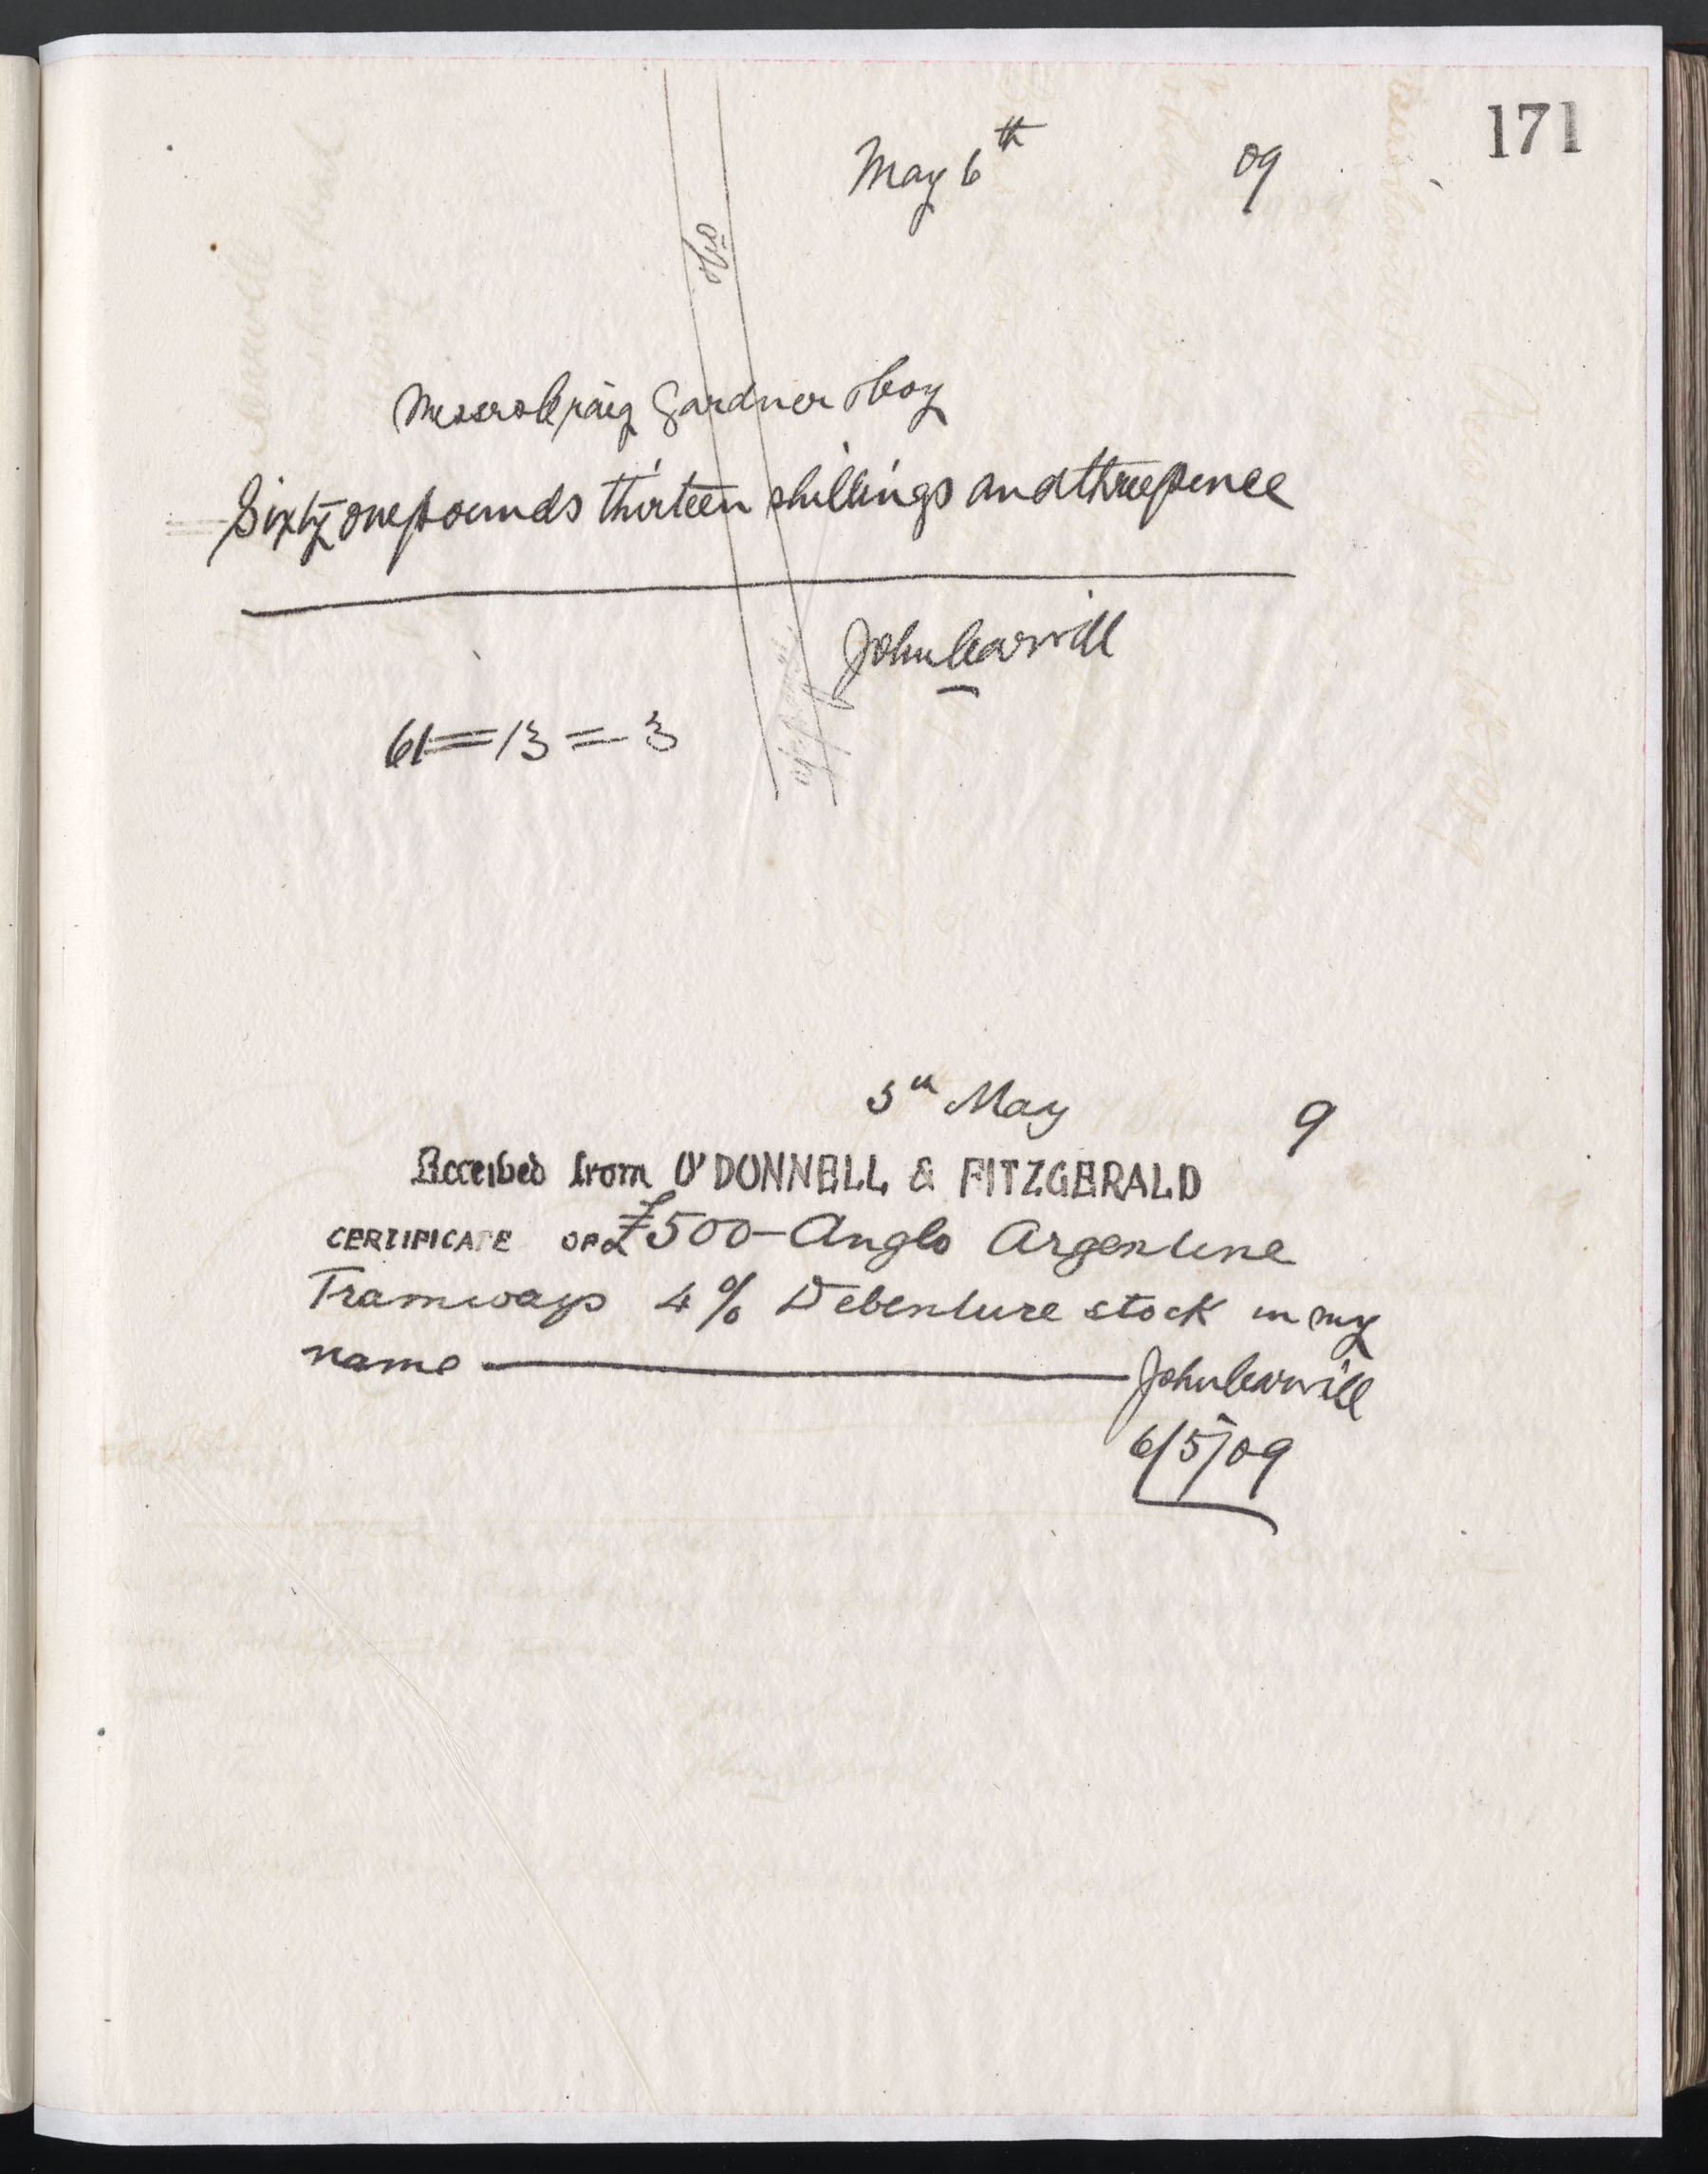 171
May 6th 09
& Co
Messrs Craig Gardner & Coy
Sixty one pounds thirteen shillings and three pence
John Carvill
61=13=3
5th May 9
Received from O'DONNELL & FITZGERALD
CERTIFICATE OF £500 - Anglo Argentine
Tramways 4% Debenture stock in my
name John Carvill
6/5/09